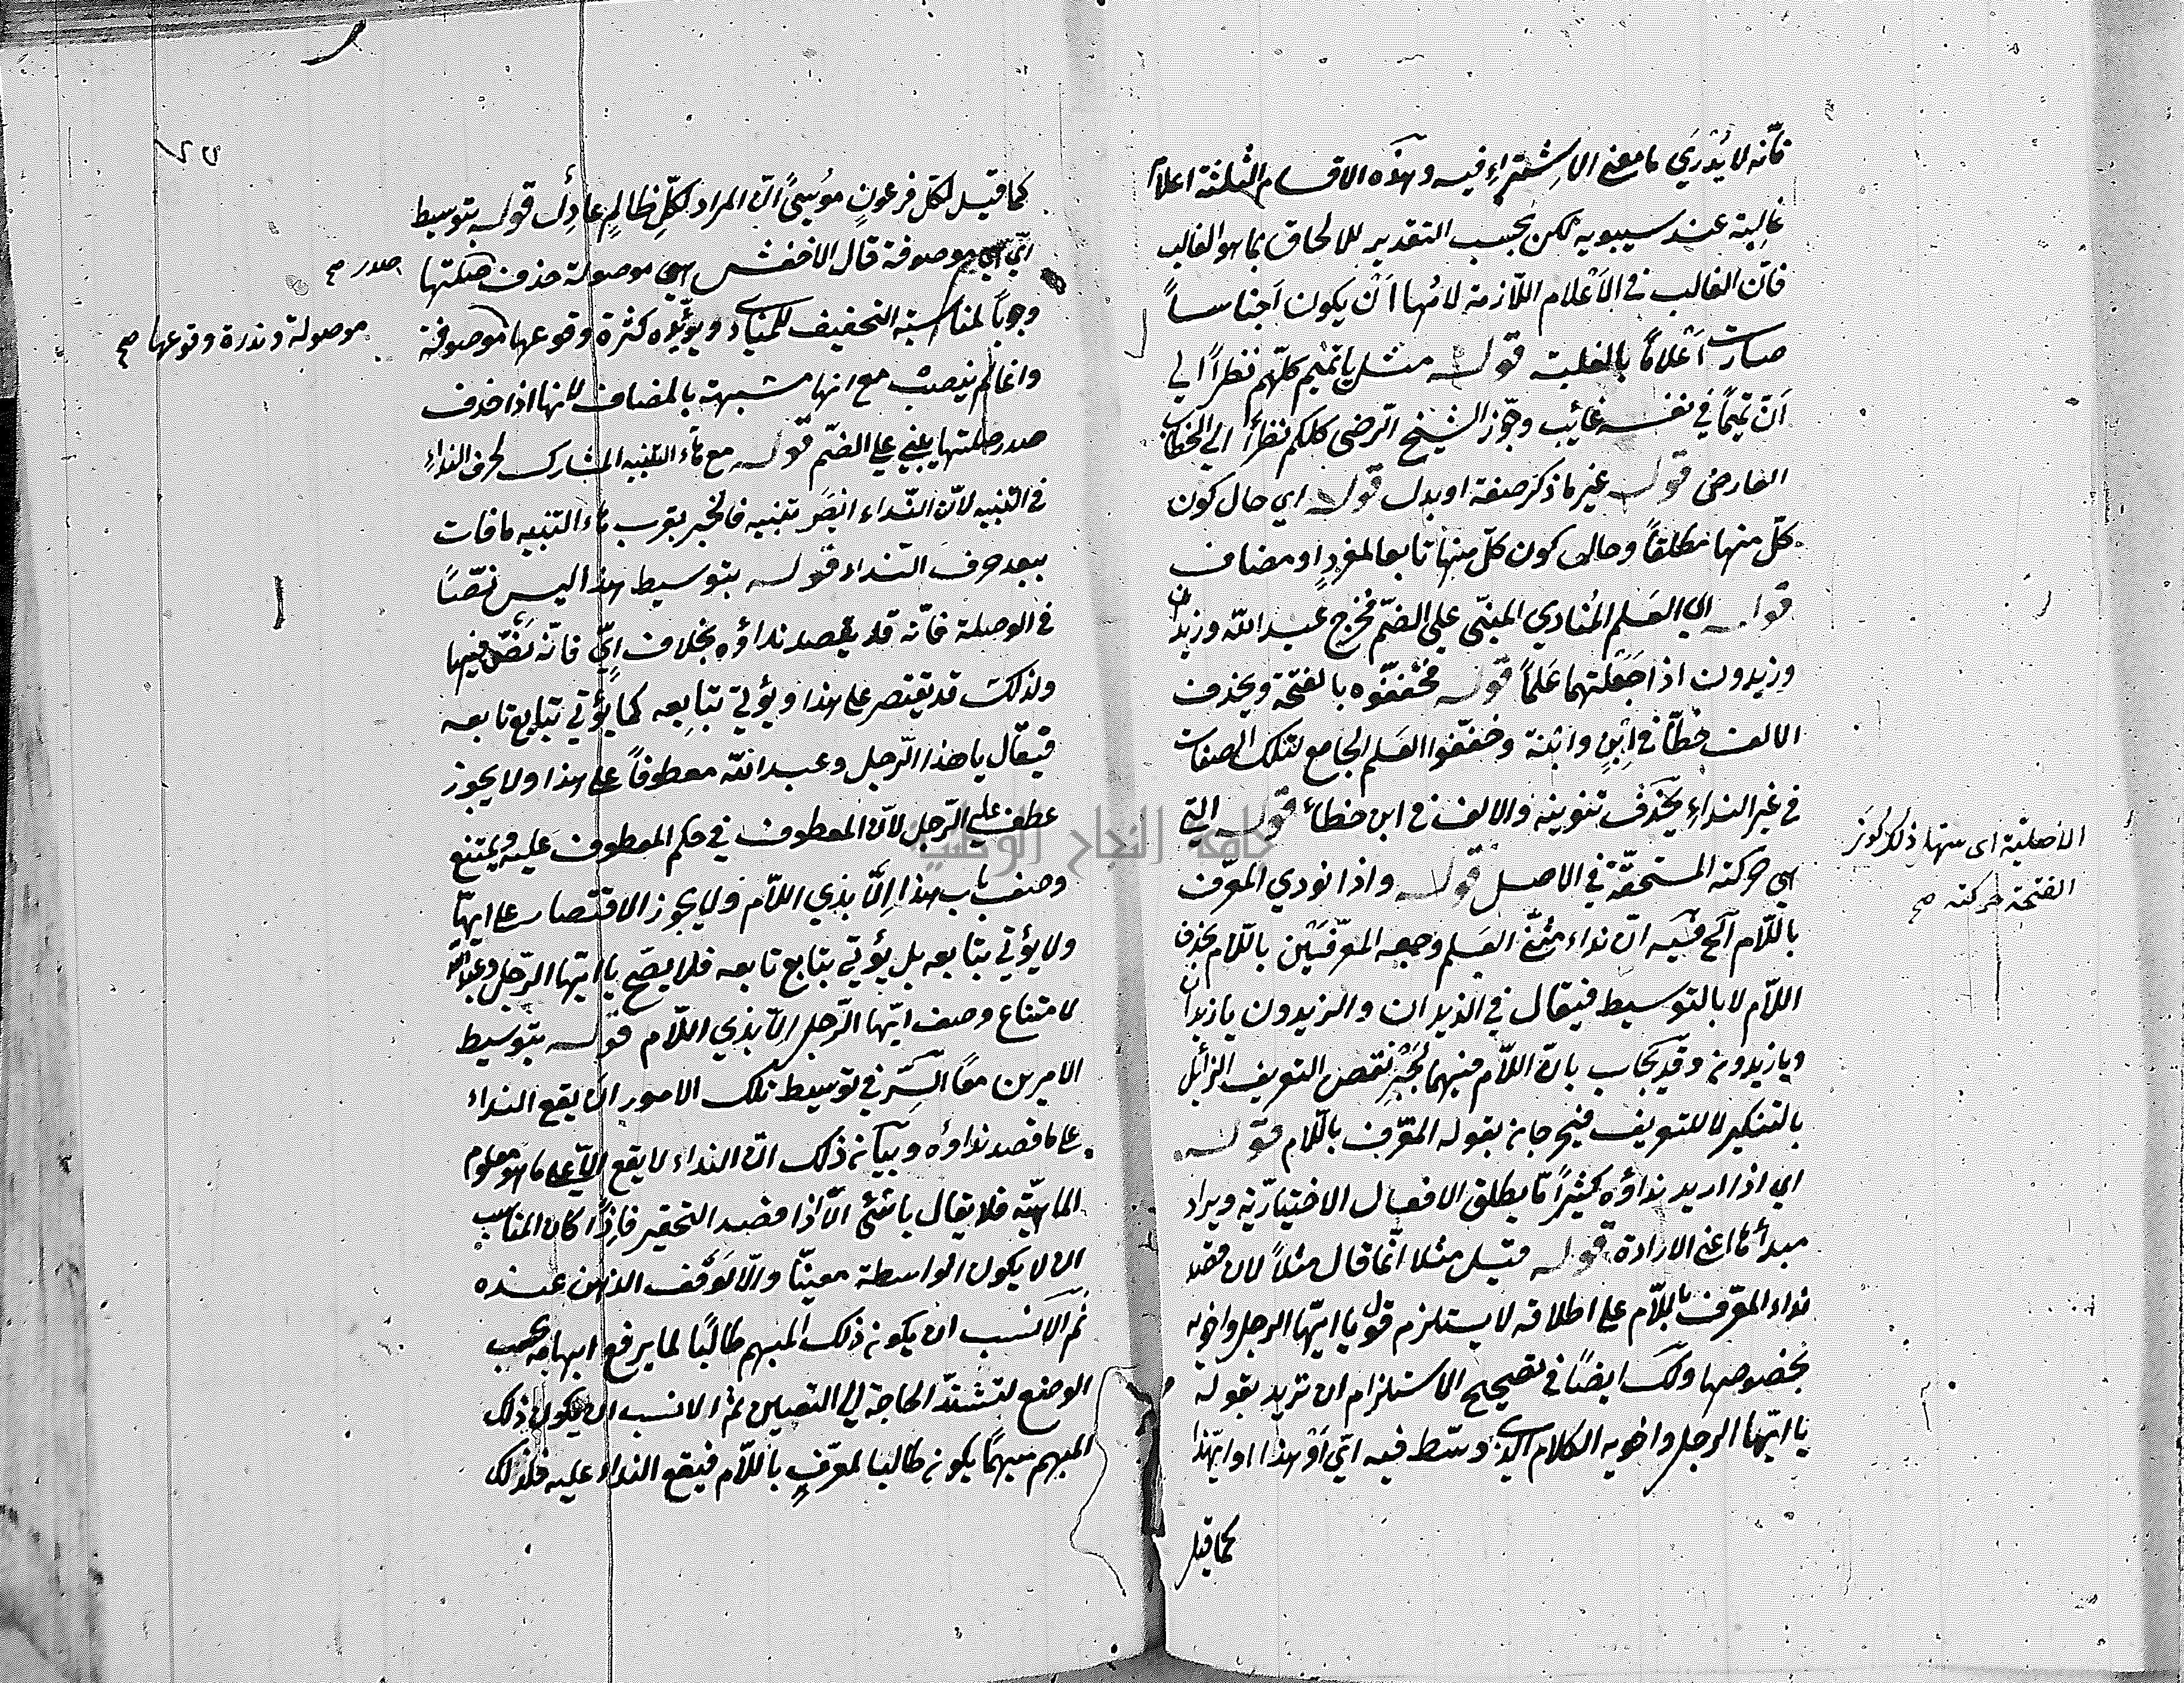 فانّه لا يُدْرَي ما معنى الاِشتراءِ فيه وهذه الاقسام الثلثة اعلاماً
غالبة عند سيبويه لكن بحسب التقدير للالحاق بما هو الغالب
فانّ الغالب في الاَعْلام اللّازمة لامُها اَنْ يكون اَجناساً
صارت اَعْلاماً بالغلبة قوله مثل يا تميم كلّهم نظراً الى
اَنّ تميماً في نفسه غائب وجوّز الشيخ الرّضى كلكم نظراً الى الخطاب
العارضى قوله غير ما ذكر صفة او بدل قوله اي حال كون
كلّ منها مطلقاً وحال كون كلّ منها تابعا لمفردٍ او مضاف
قوله اى العَلم المُنادي المبنّى على الضّم فخرج عبد اللّه وزيدان
وزيدون اذا جَعَلتهما عَلماً قوله فخففوه بالفتحة ويحذف
الالف خطّاً في اِبْنٍ وابْنة وخفّفوا العَلم الجامع لتلك الصفات
في غير النداءِ بحَذفِ تنوينه والالف في ابن خطاً قوله التي
هى حركته المستحقّة في الاصل قوله واذا نودي المعرّف
باللّام آلخ فيه انّ نداء مثنّى العَلم وجمعه المعرّفَيْن باللّام بحذف
اللّام لا بالتوسيط فيقال في الزيدان والزيدون يا زيدان
ويا زيدون وقد يجاب بانّ اللّام فيهما لجَبْرِ نقص التعريف الزائل
بالتنكير لا للتعريف فيخرجان بقوله المعرّف باللّام قوله
اى اذا اريد نداؤه كثيراً ما يطلق الافعال الاختياريّة ويراد
مبدأها اعنى الارادة قوله قيل مثلا انّما قال مثلاً لان قصد
نداء المعرّف باللّام على اطلاقه لا يستلزم قول يا ايّها الرجل واخويه
بخصوصها ولك ايضاً في تصحيح الاستلزام ان تريد بقوله
يا ايّها الرجل واخويه الكلام الذي وسّط فيه ايّ اَوْ هذا او ايّهذا
كما قيل
الاصلية اى ستها ذلك لو تر
الفتحة حركته صح
كما قيل لكلّ فرعونٍ مُوسىً انّ المراد لكلّ ظالمٍ عادل قوله بتوسيط
ايّ اى موصوفة قال الاخفش هى موصولة حذف صلتها
صدر صح
وجوباً لمناسبة التخفيف للمنادى ويؤيّده كثرة وقوعها موصوفة
موصولة وندرة وقوعها صح
وانما لم ينصب مع انها مشبهة بالمضاف لانها اذا حذف
صدر صلتها يبنى على الضّم قوله مع هاء التنبيه المشارك لحرف النداءِ
في التنبيه لانّ النّداء ايضاً تنبيه فالجبر بقرب هاء التنبيه ما فات
ببعد حرف النّداء قوله بتوسيط هذا ليس نصّاً
في الوصلة فانّه قد يقصد نداؤه بخلاف ايّ فانّه نَصّ فيها
ولذلك قد يقتصر على هذا ويؤتى بتابِعه كما يُؤتي بتابع تابعه
فيقال يا هذا الرّجل وعبد اللّه معطوفاً على هذا ولا يجوز
عطف على الرّجل لانّ المعطوف في حكم المعطوف عليه ويمتنع
وصف باب هذا اِلّا بذي اللّام ولا يجوز الاقتصار على ايّها
ولا يؤتى بتابعه بل يؤتى بتابع تابعه فلا يصحّ يا ايّها الرّجل وعبد اللّه
لامتناع وصف ايّها الرّجل الّا بذي اللّام قوله بتوسيط
الامرين معًا السّر في توسيط تلك الامور ان يقع النداء
على ما قصد نداؤه وبيان ذلك انّ النداء لا يقع الّا على ما هو معلوم
الماهيّة فلا يقال يا شئ الّا اذا قصد التحقير فاِذاً كان المناسب
ان لا يكون الواسطة معيّنا والّا توقف الذهن عنده
ثم الاَنسب ان يكون ذلك المبهم طالبًا لما يرفع ابهامه بحسب
الوضع لتشتدّ الحاجة الى التعيين ثم الانسب ان يكون ذلك
المبهم مبهمًا يكون طالبا لمعرّفٍ باللّام فيقع النداء عليه فلذلك